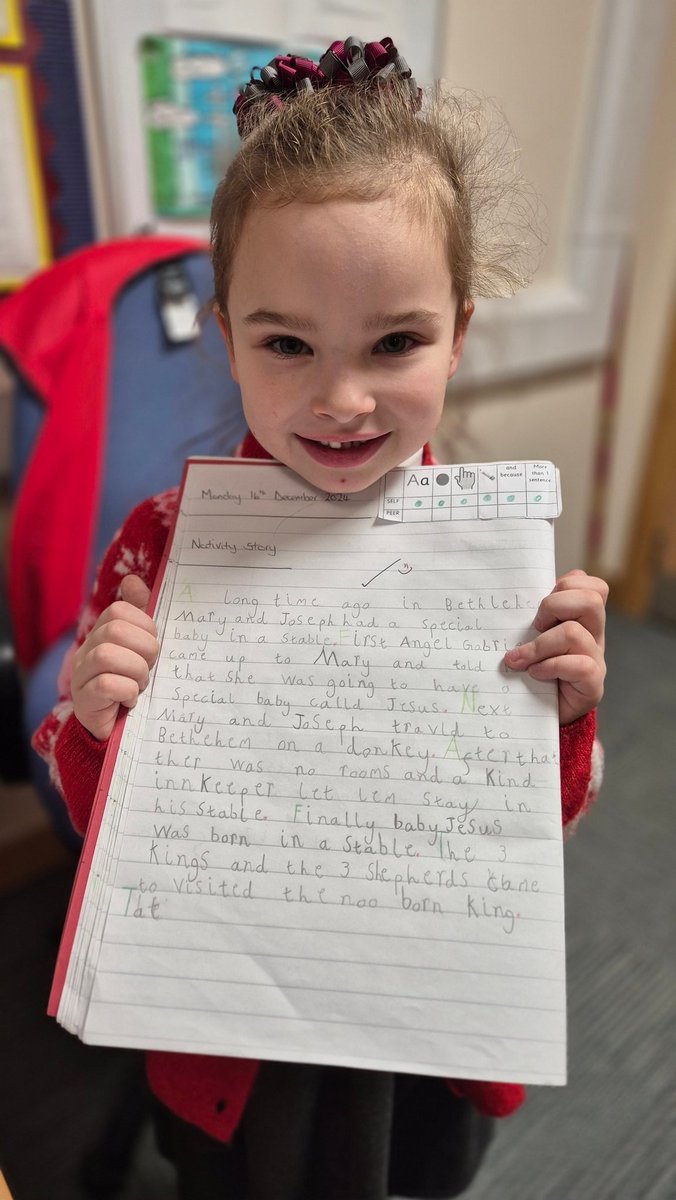 and because
More than 1 sentence
Aa
SELF
PEER
Monday 16th December 2024
Nativity Story
A long time ago in Bethlehe
Mary and Joseph had a special
baby in a stable. First Angel Gabri
came up to Mary and told
that she was going to have a
special baby calld Jesus. Next
Mary and Joseph travld to
Bethehem on a donkey. After that
ther was no rooms and a Kind
innkeeper let tem stay in
his stable. Finally baby Jesus
was born in a stable. The 3
Kings and the 3 shepherds came
to visited the noo born King.
Tat